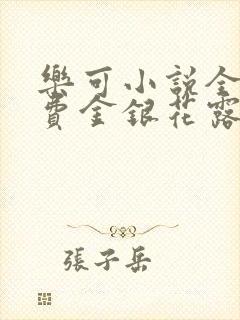 樂可小說全
費金銀花露
張子岳